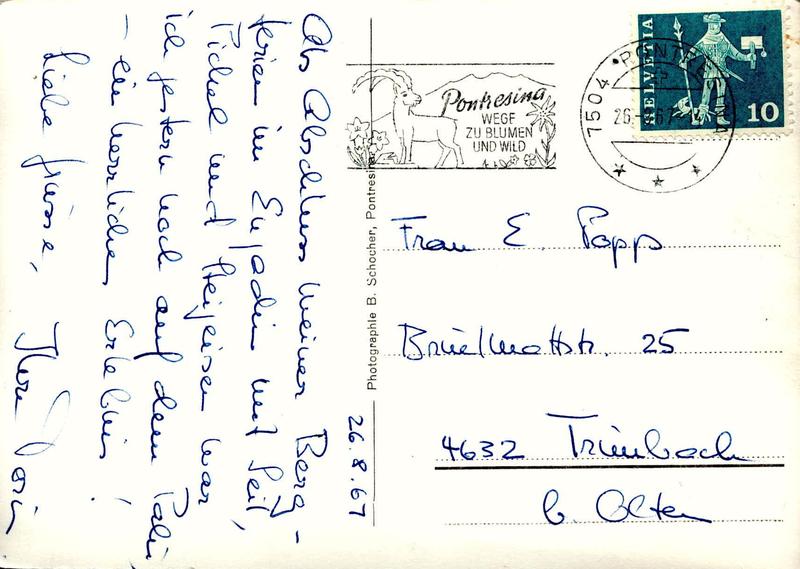 26.8.67
Als Abschluss meiner Berg-
ferien im Engadin mit Seil,
Pickel und Steigeisen war
ich gestern noch auf dem Palü
– ein herrliches Erlebnis!
Liebe Grüsse,
Photographie B. Schocher, Pontresina
Pontresina
WEGE
ZU BLUMEN
UND WILD
7504 PONTRESINA
HELVETIA
10
Frau E. Popp
Brüelmattstr. 25
4632 Trimbach
b. Olten